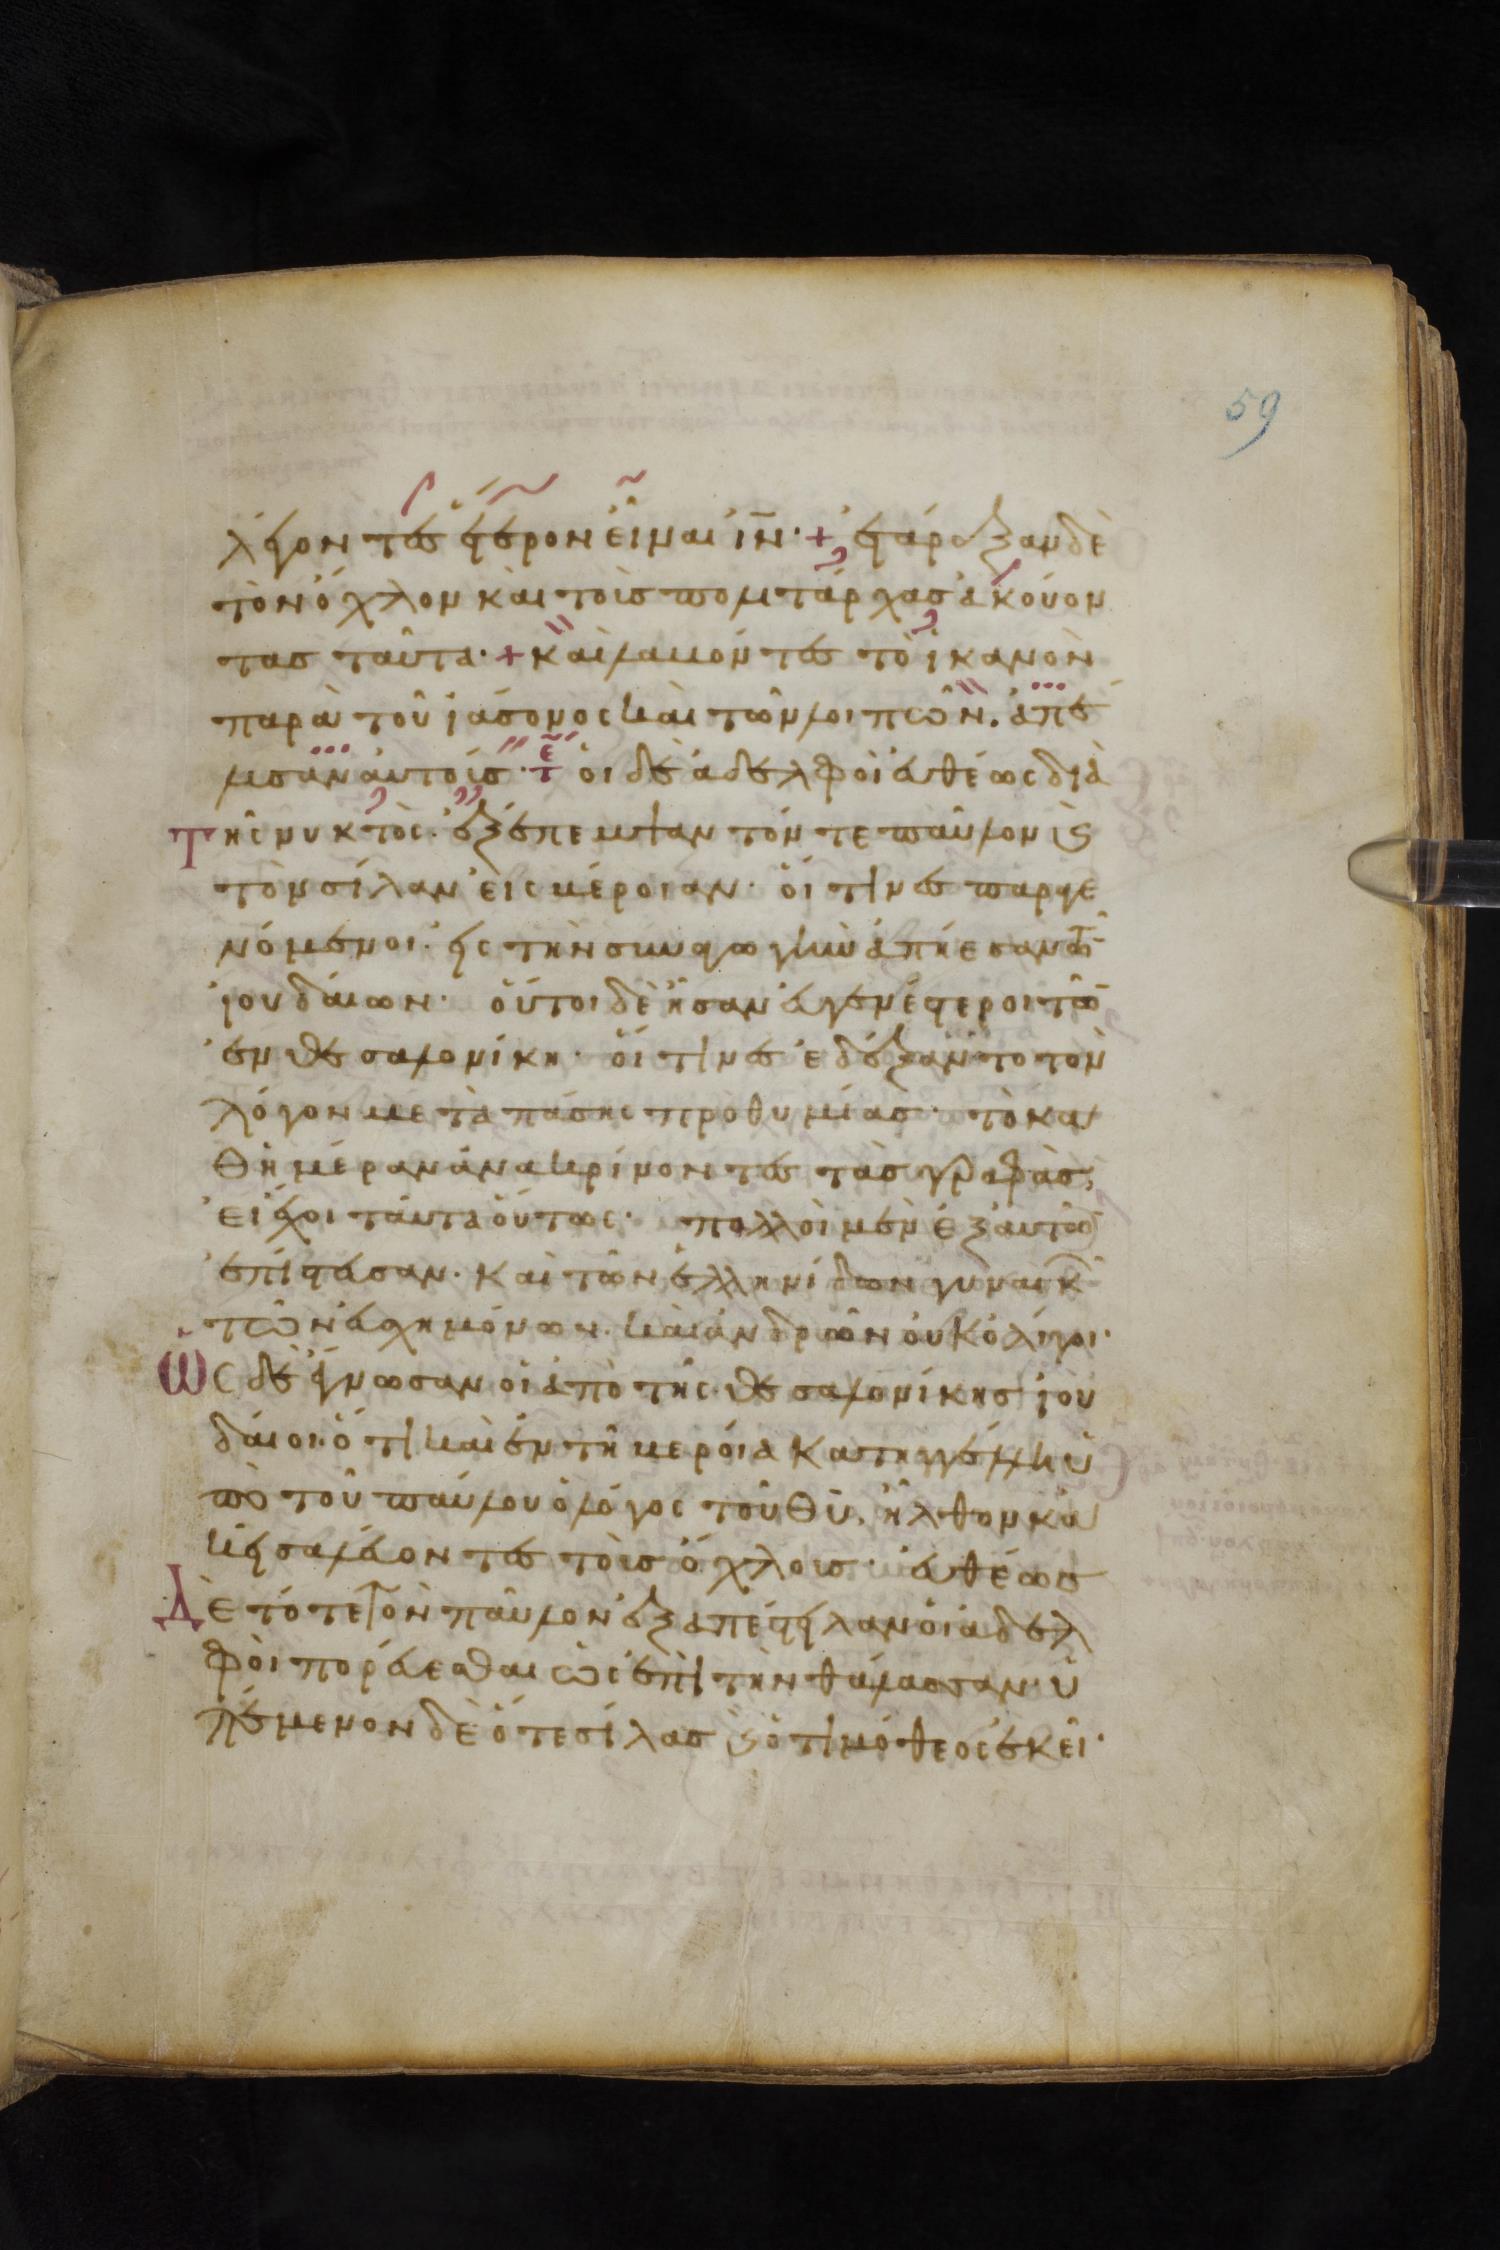 59
λέγοντες ἕτερον εἶναι ἰν̅· + ἐτάραξαν δὲ
τὸν ὄχλον καὶ τοὺς πολιτάρχας ἀκούον
τας ταῦτα· + καὶ λαβόντες τὸ ἱκανὸν
παρὰ τοῦ ἰάσονος καὶ τῶν λοιπῶν. ἀπέ
λυσαν αὐτούς· τε οἱ δὲ ἀδελφοὶ εὐθέως διὰ
τῆς νυκτὸς· ἐξέπεμψαν τόν τε παῦλον ϗ
τὸν σίλαν εἰς βέροιαν· οἵτινες παραγε
νόμενοι· εἰς τὴν συναγωγὴν ἀπῄεσαν τῶν
ἰουδαίων· οὗτοι δὲ ἦσαν εὐγενέστεροι τῶν
ἐν θεσαλονίκη· οἵτινες ἐδέξαντο τὸν
λόγον μετὰ πάσης προθυμίας· τὸ κα
θημέραν ἀνακρίνοντες τὰς γραφὰς,
εἰ ἔχοι ταῦτα οὕτως· πολλοὶ μὲν ἐξ αὐτῶν
ἐπίστευσαν· καὶ τῶν ἑλληνίδων γυναικ
τῶν εὐσχημόνων. καὶ ἀνδρῶν οὐκ ὀλίγοι·
ὡς δὲ ἔγνωσαν οἱ ἀπὸ τῆς θεσαλονίκης ἰου
δαῖοι· ὅτι καὶ ἐν τῆ βεροία κατηγγέλη ὑ
πὸ τοῦ παύλου ὁ λόγος τοῦ θυ̅, ἦλθον κα
κεῖ σαλεύοντες τοὺς ὄχλους· εὐθέως
δὲ τότε τὸν παῦλον ἐξαπέστειλαν οἱ ἀδελ
φοὶ πορεύεσθαι ὡς ἐπὶ τὴν θάλασσαν· ὑ
πέμενον δὲ ὅ τε σίλας ϗ ὁ τιμόθεος ἐκεῖ·